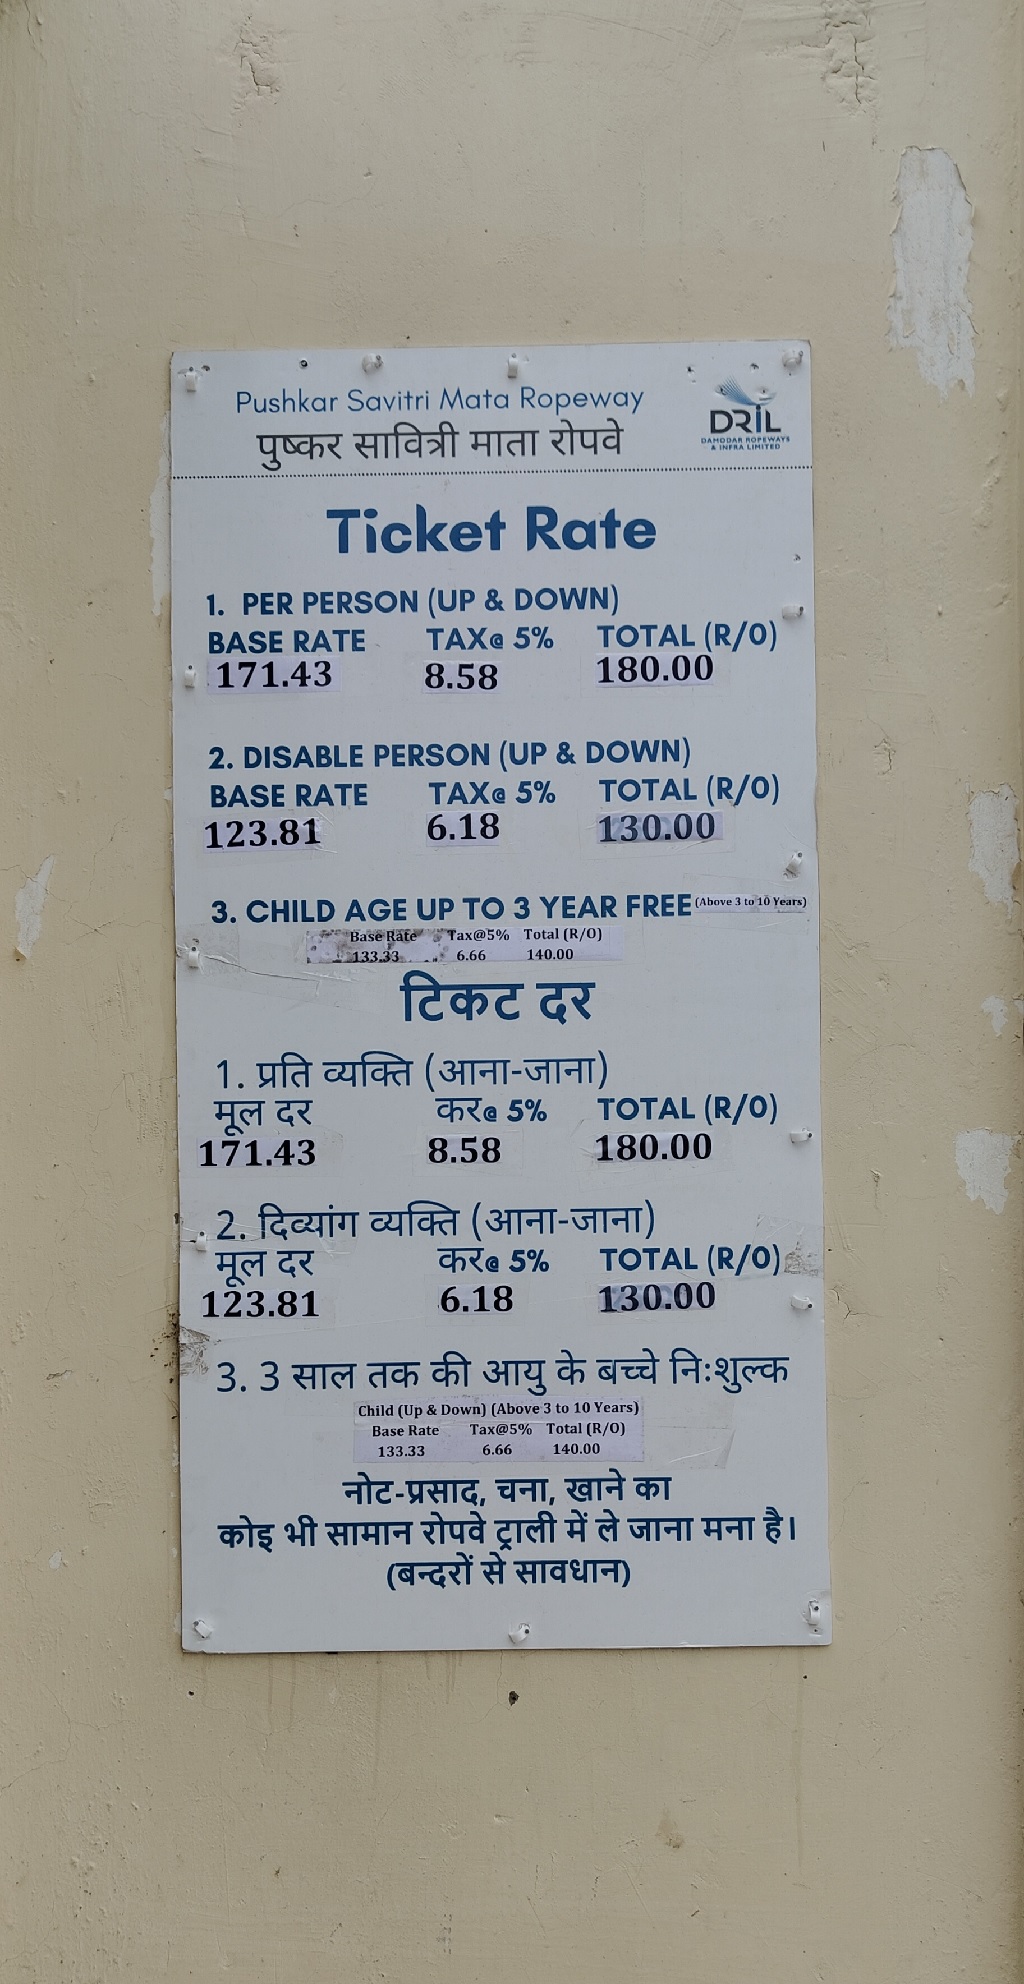 Pushkar Savitri Mata Ropeway
पुष्कर सावित्री माता रोपवे
DRIL
DAMODAR ROPEWAYS
& INFRA LIMITED
Ticket Rate
1. PER PERSON (UP & DOWN)
BASE RATE TAX@ 5% TOTAL (R/O)
171.43 8.58 180.00
2. DISABLE PERSON (UP & DOWN)
BASE RATE TAX@ 5% TOTAL (R/O)
123.81 6.18 130.00
3. CHILD AGE UP TO 3 YEAR FREE (Above 3 to 10 Years)
Base Rate Tax@5% Total (R/O)
133.33 6.66 140.00
टिकट दर
1. प्रति व्यक्ति (आना-जाना)
मूल दर कर@ 5% TOTAL (R/O)
171.43 8.58 180.00
2. दिव्यांग व्यक्ति (आना-जाना)
मूल दर कर@ 5% TOTAL (R/O)
123.81 6.18 130.00
3. 3 साल तक की आयु के बच्चे निःशुल्क
Child (Up & Down) (Above 3 to 10 Years)
Base Rate Tax@5% Total (R/O)
133.33 6.66 140.00
नोट-प्रसाद, चना, खाने का
कोइ भी सामान रोपवे ट्राली में ले जाना मना है।
(बन्दरों से सावधान)